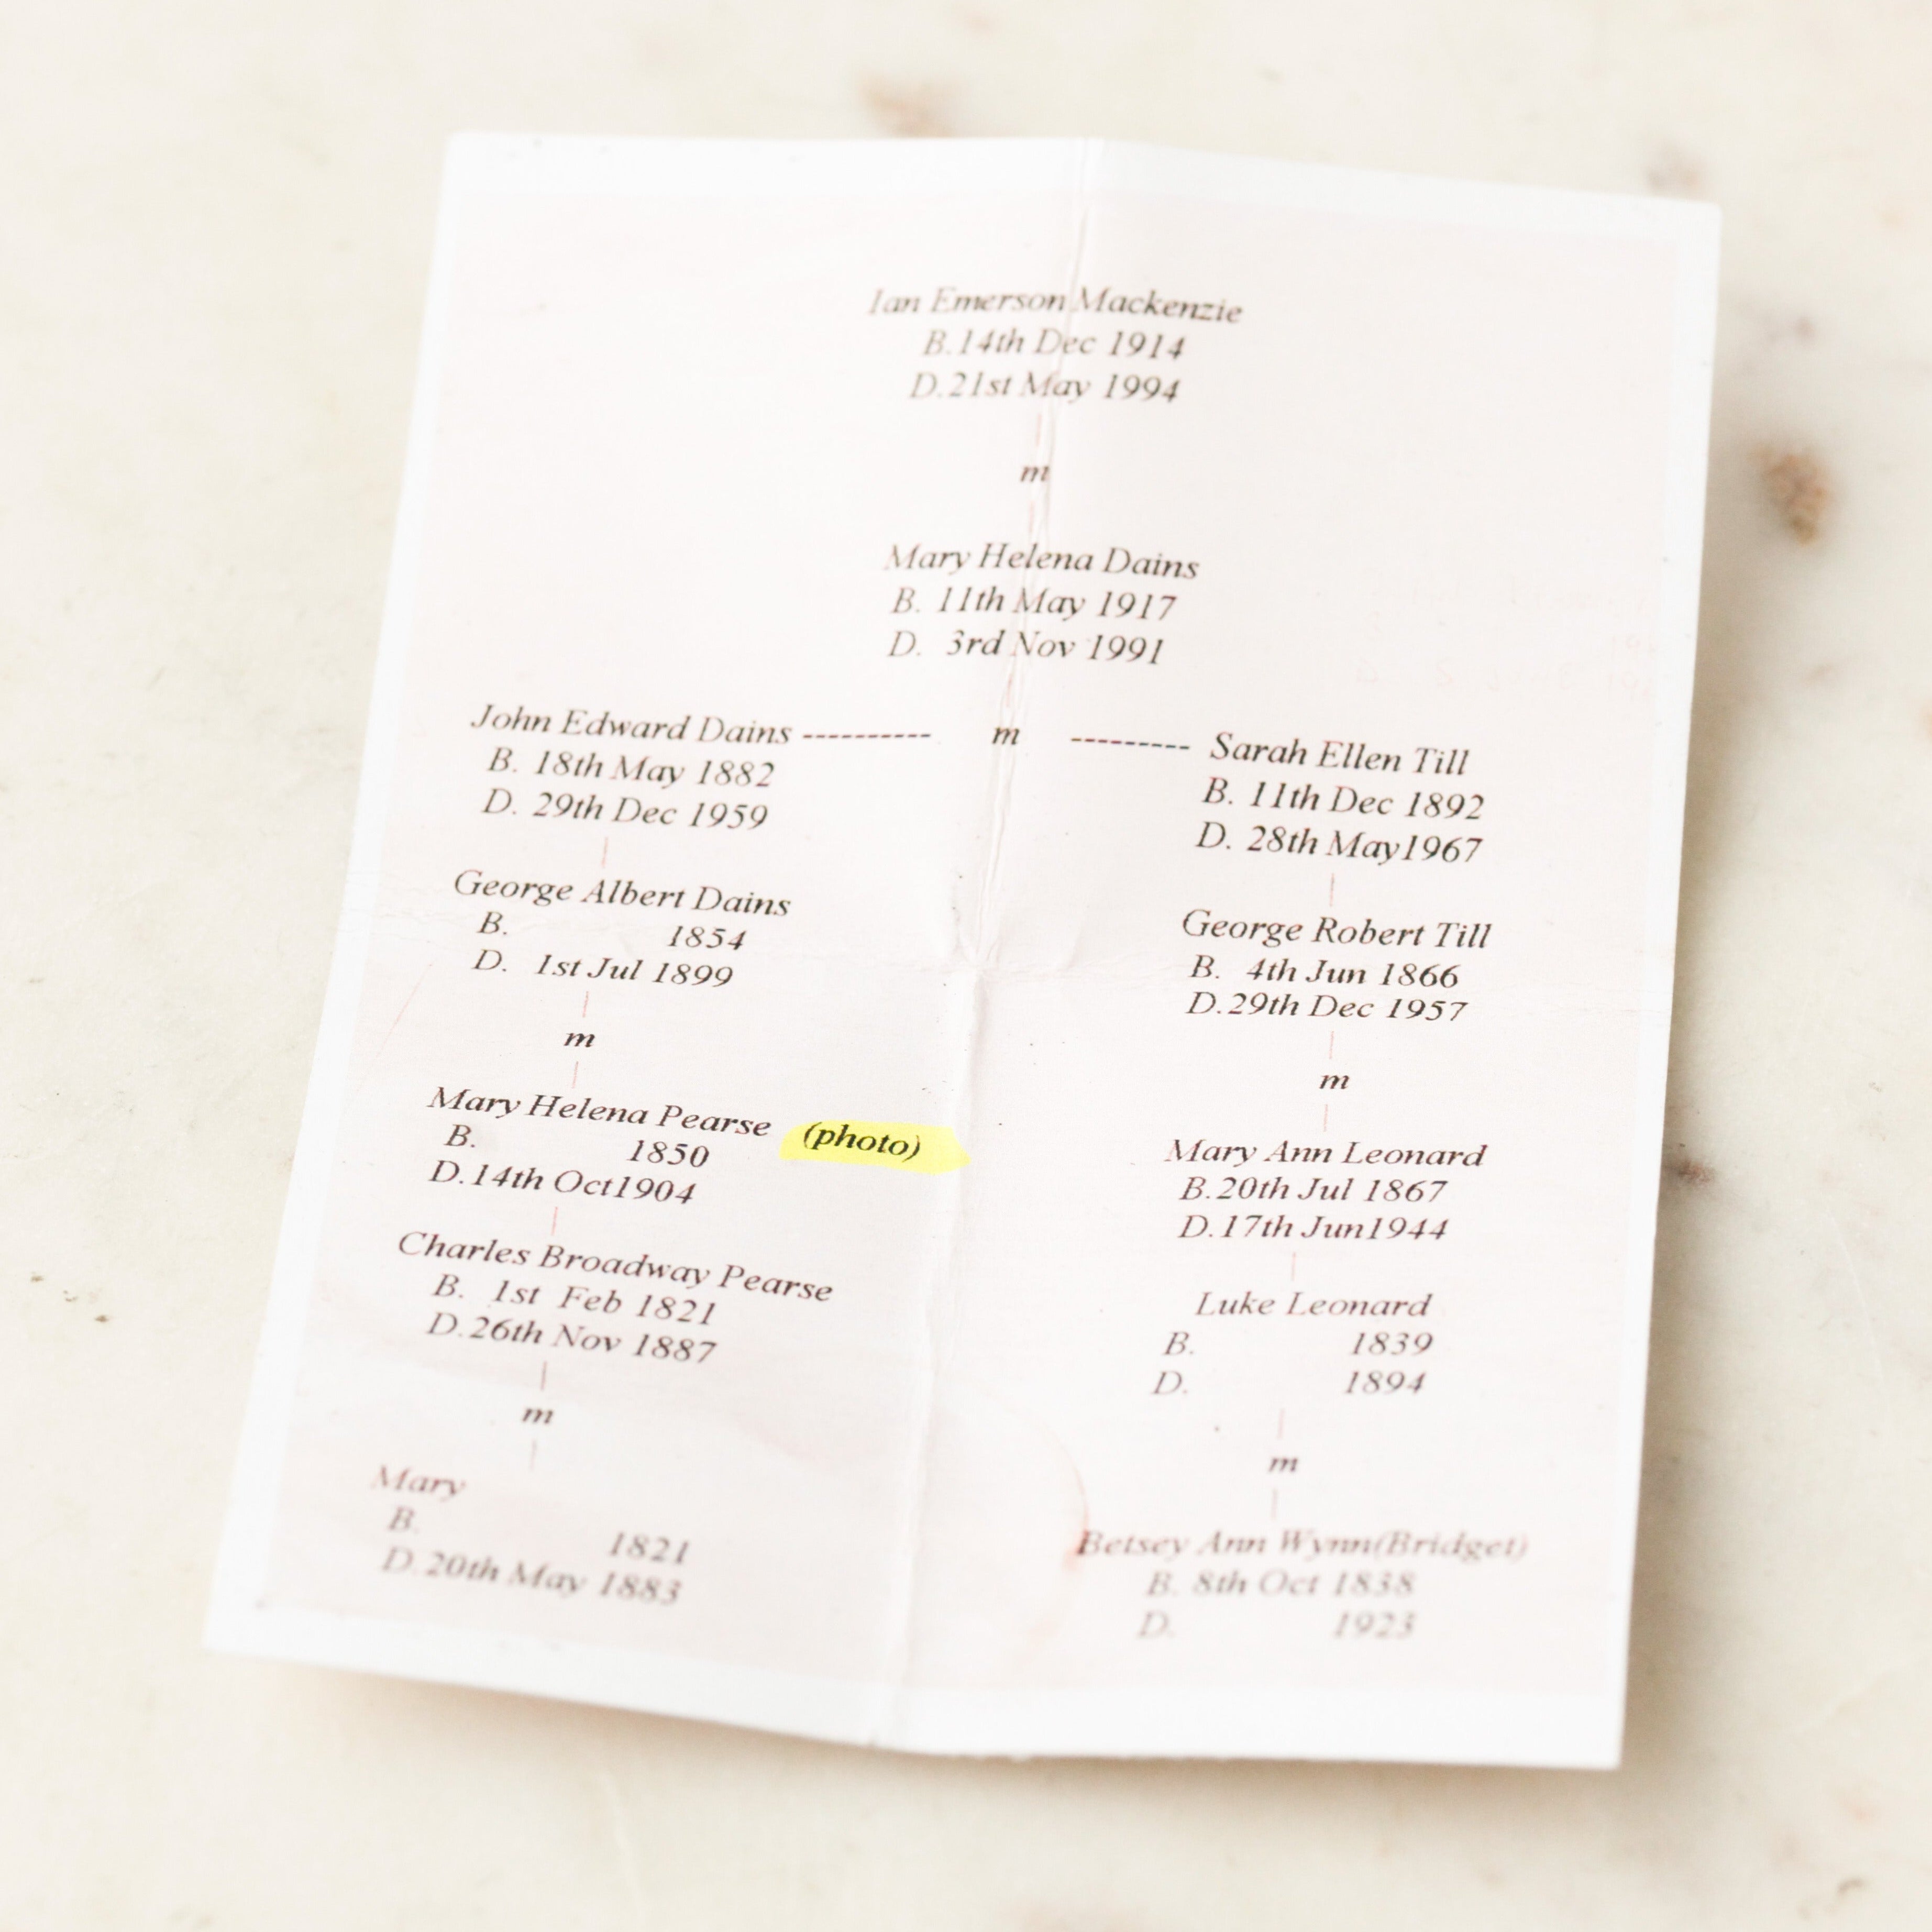 Ian Emerson Mackenzie
B.14th Dec 1914
D.21st May 1994
m
Mary Helena Dains
B. 11th May 1917
D. 3rd Nov 1991
John Edward Dains ---------- m --------- Sarah Ellen Till
B. 18th May 1882
D. 29th Dec 1959
B. 11th Dec 1892
D. 28th May1967
George Albert Dains
B. 1854
D. 1st Jul 1899
m
Mary Helena Pearse (photo)
B. 1850
D.14th Oct1904
Charles Broadway Pearse
B. 1st Feb 1821
D.26th Nov 1887
m
Mary
B. 1821
D.20th May 1883
George Robert Till
B. 4th Jun 1866
D.29th Dec 1957
m
Mary Ann Leonard
B.20th Jul 1867
D.17th Jun1944
Luke Leonard
B. 1839
D. 1894
m
Betsey Ann Wynn(Bridget)
B. 8th Oct 1838
D. 1923